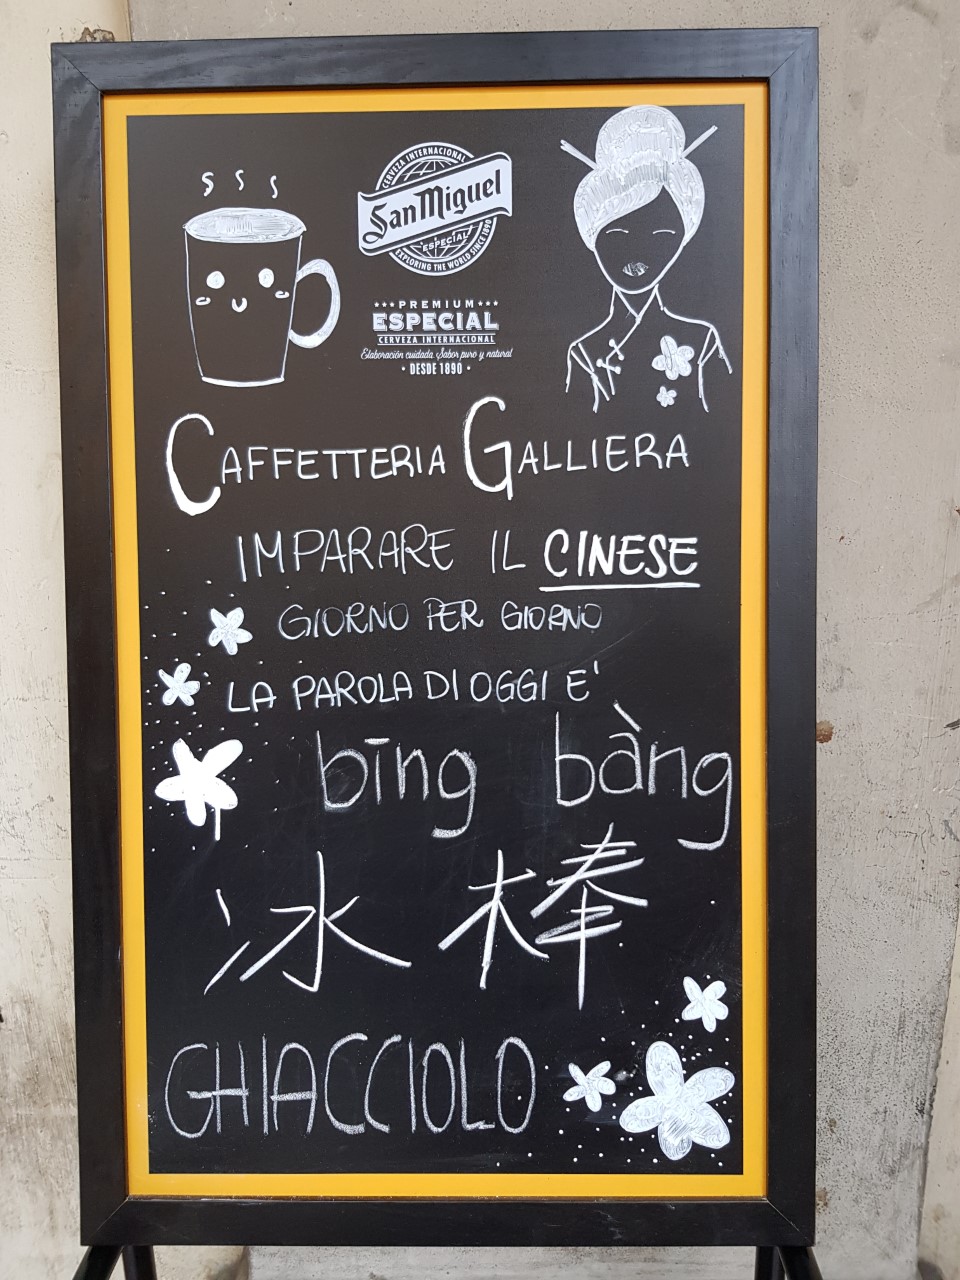 CERVEZA INTERNACIONAL
San Miguel
ESPECIAL
EXPLORING THE WORLD SINCE 1890
PREMIUM
ESPECIAL
CERVEZA INTERNACIONAL
Elaboración cuidada, Sabor puro y natural
· DESDE 1890 ·
CAFFETTERIA GALLIERA
IMPARARE IL CINESE
GIORNO PER GIORNO
LA PAROLA DI OGGI E'
bīng bàng
冰棒
GHIACCIOLO